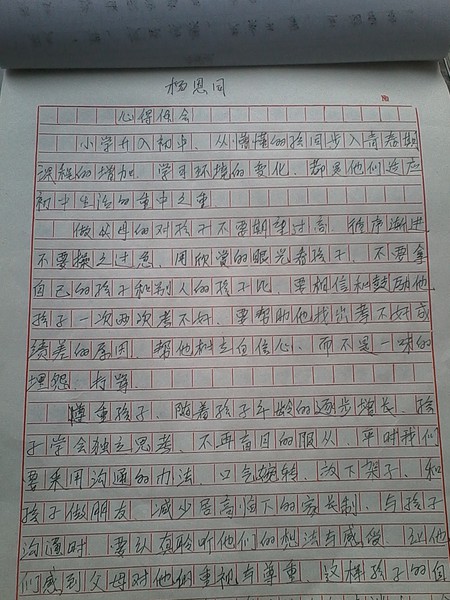 杨恩同
心得体会
小学升入初中，从懵懂的孩同步入青春期
课程的增加，学习环境的变化，都是他们适应
初中生活的重中之重
做父母的对孩子不要期望过高，循序渐进
不要操之过急，用欣赏的眼光看孩子，不要拿
自己的孩子和别人的孩子比，要相信和鼓励他
孩子一次两次考不好，要帮助他找出考不好或
绩差的原因，帮他树立自信心，而不是一味的
埋怨，打骂．
尊重孩子，随着孩子年龄的逐步增长，孩
子学会独立思考，不再盲目的服从，平时我们
要采用沟通的办法，口气婉转，放下架子，和
孩子做朋友，减少居高临下的家长制，与孩子
沟通时，要认真聆听他们的想法与感受，让他
们感到父母对他们重视与尊重，这样孩子的自